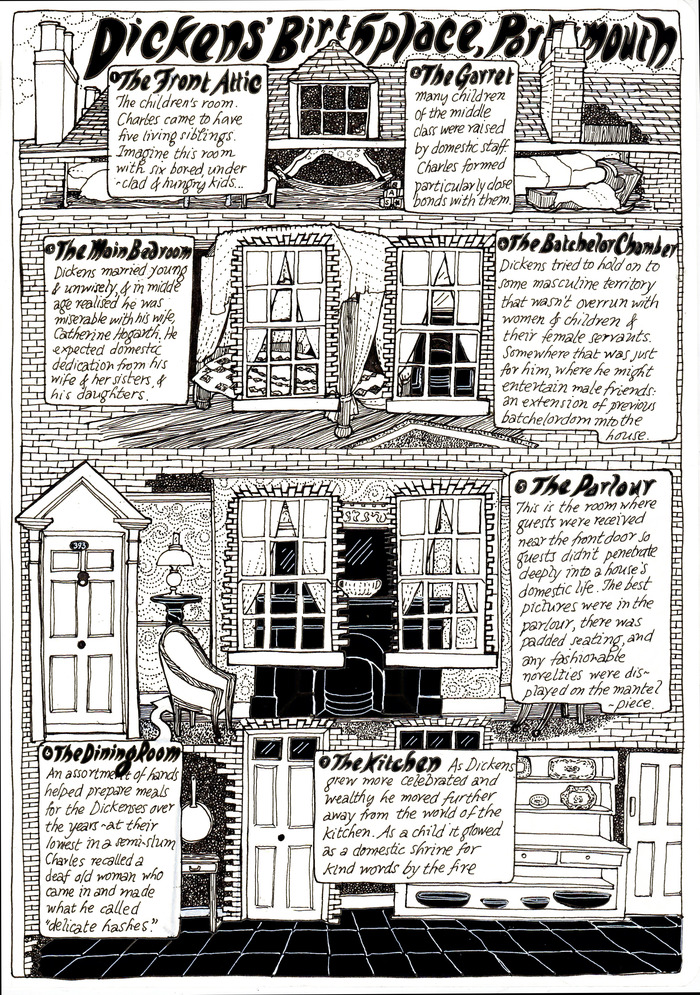 Dickens' Birthplace, Portsmouth
The Front Attic
The children's room.
Charles came to have
five living siblings.
Imagine this room
with six bored, under
-clad & hungry kids...
The Garret
many children
of the middle
class were raised
by domestic staff
Charles formed
particularly close
bonds with them.
The Main Bedroom
Dickens married young
& unwisely, & in middle
age realised he was
miserable with his wife,
Catherine Hogarth. He
expected domestic
dedication from his
wife & her sisters, &
his daughters.
The Batchelor Chamber
Dickens tried to hold on to
some masculine territory
that wasn't overrun with
women & children &
their female servants.
Somewhere that was just
for him, where he might
entertain male friends:
an extension of previous
batchelordom into the
house.
393
The Parlour
This is the room where
guests were received
near the front door so
guests didn't penetrate
deeply into a house's
domestic life. The best
pictures were in the
parlour, there was
padded seating, and
any fashionable
novelties were dis-
played on the mantel
-piece.
The Dining Room
An assortment of hands
helped prepare meals
for the Dickenses over
the years - at their
lowest in a semi-slum
Charles recalled a
deaf old woman who
came in and made
what he called
"delicate hashes".
The Kitchen As Dickens
grew more celebrated and
wealthy he moved further
away from the world of the
kitchen. As a child it glowed
as a domestic shrine for
kind words by the fire